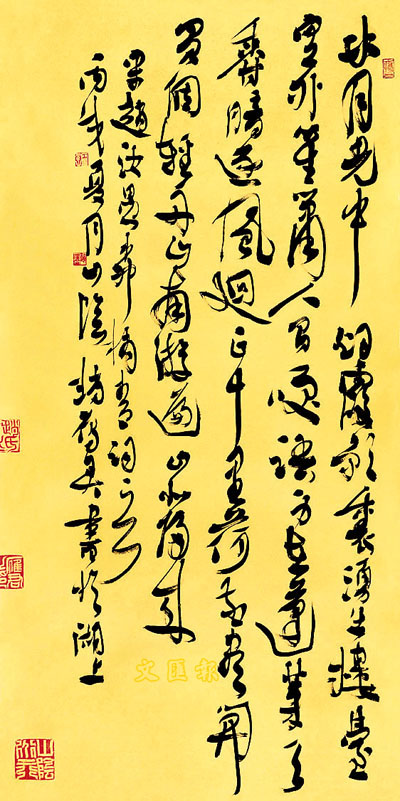 水月光中烟霞影裏湧出樓臺
空外笙簫人間笑語身在蓬萊天
香暗逐風迴正十里荷花盡開
買個輕舟山南遊遍山北歸來
宋趙汝愚柳梢青詞
丙戌夏月山陰趙雁君書於湖上
趙氏
雁君
文匯報